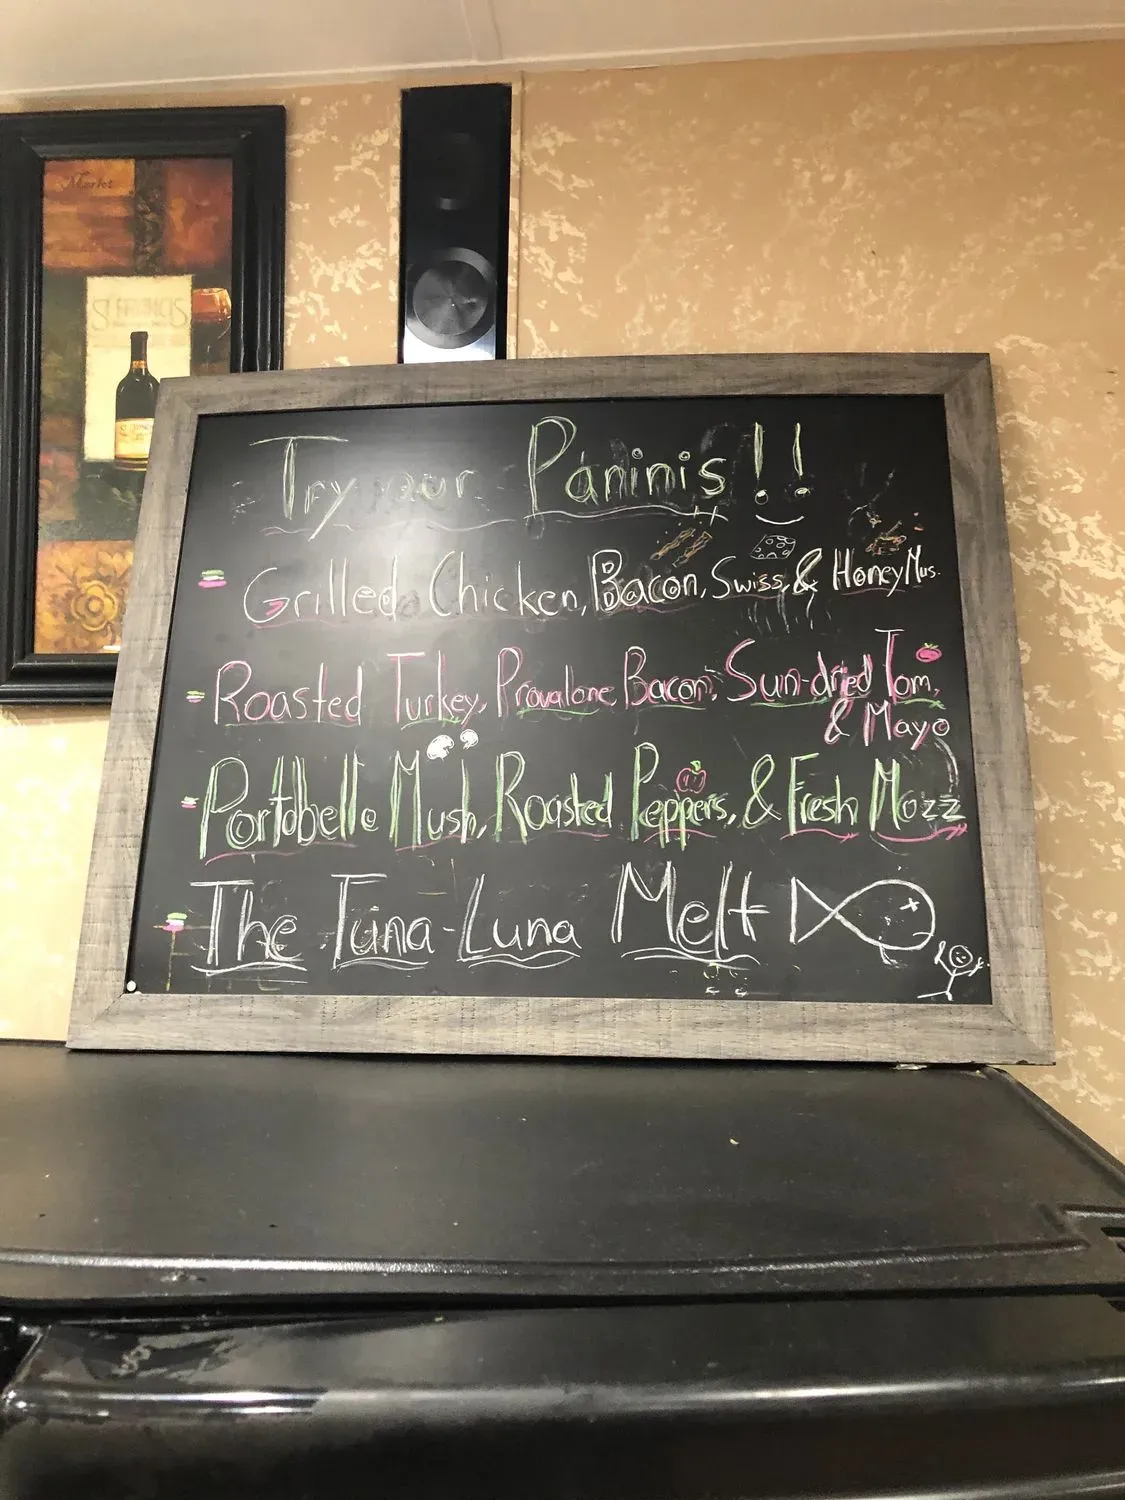 Merlot
ST. FRANCIS
Try our Paninis!!
Grilled Chicken, Bacon, Swiss, & Honey Mus.
Roasted Turkey, Provalone, Bacon, Sun-dried Tom,
& Mayo
Portobello Mush, Roasted Peppers, & Fresh Mozz
The Tuna-Luna Melt